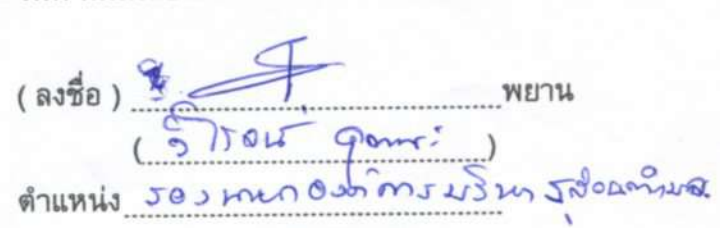 ( ลงชื่อ ) พยาน
( วิโรจน์ )
ตำแหน่ง รองนายกองค์การบริหารส่วนตำบล